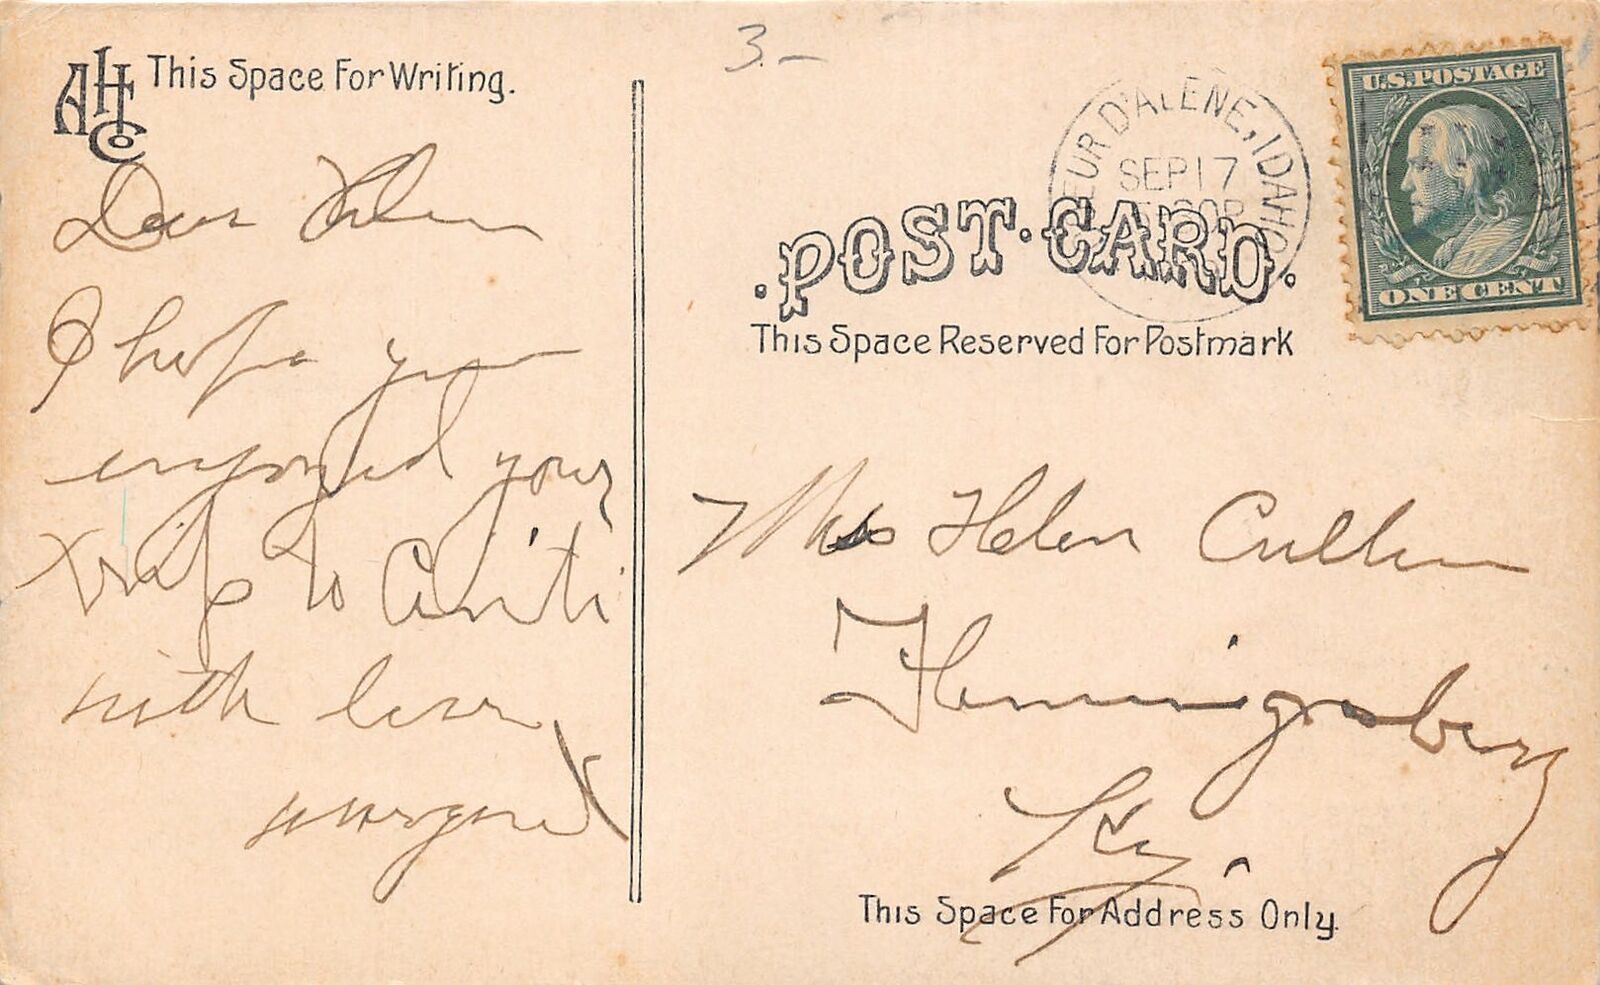 AHCo
This Space For Writing.
3.–
Dear Helen
I hope you
enjoyed your
trip to
with love
Margaret
EUR D'ALENE, IDAHO
SEP 17
U.S. POSTAGE
ONE CENT
POST CARD.
This Space Reserved For Postmark
Miss Helen Cullen
Flemingsburg
Ky.
This Space For Address Only.